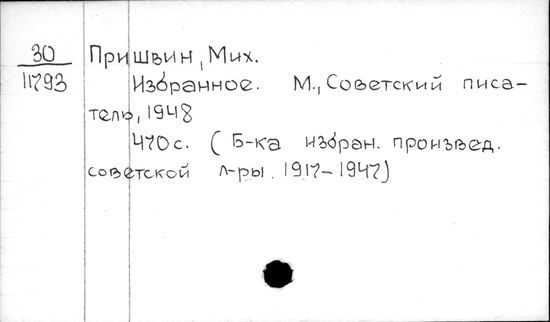 30 Пришвин, Мих.
11793 Избранное. М., Советский писа-
тель, 1948
470 с. (Б-ка избран. произвед.
советской л-ры. 1917-1947)